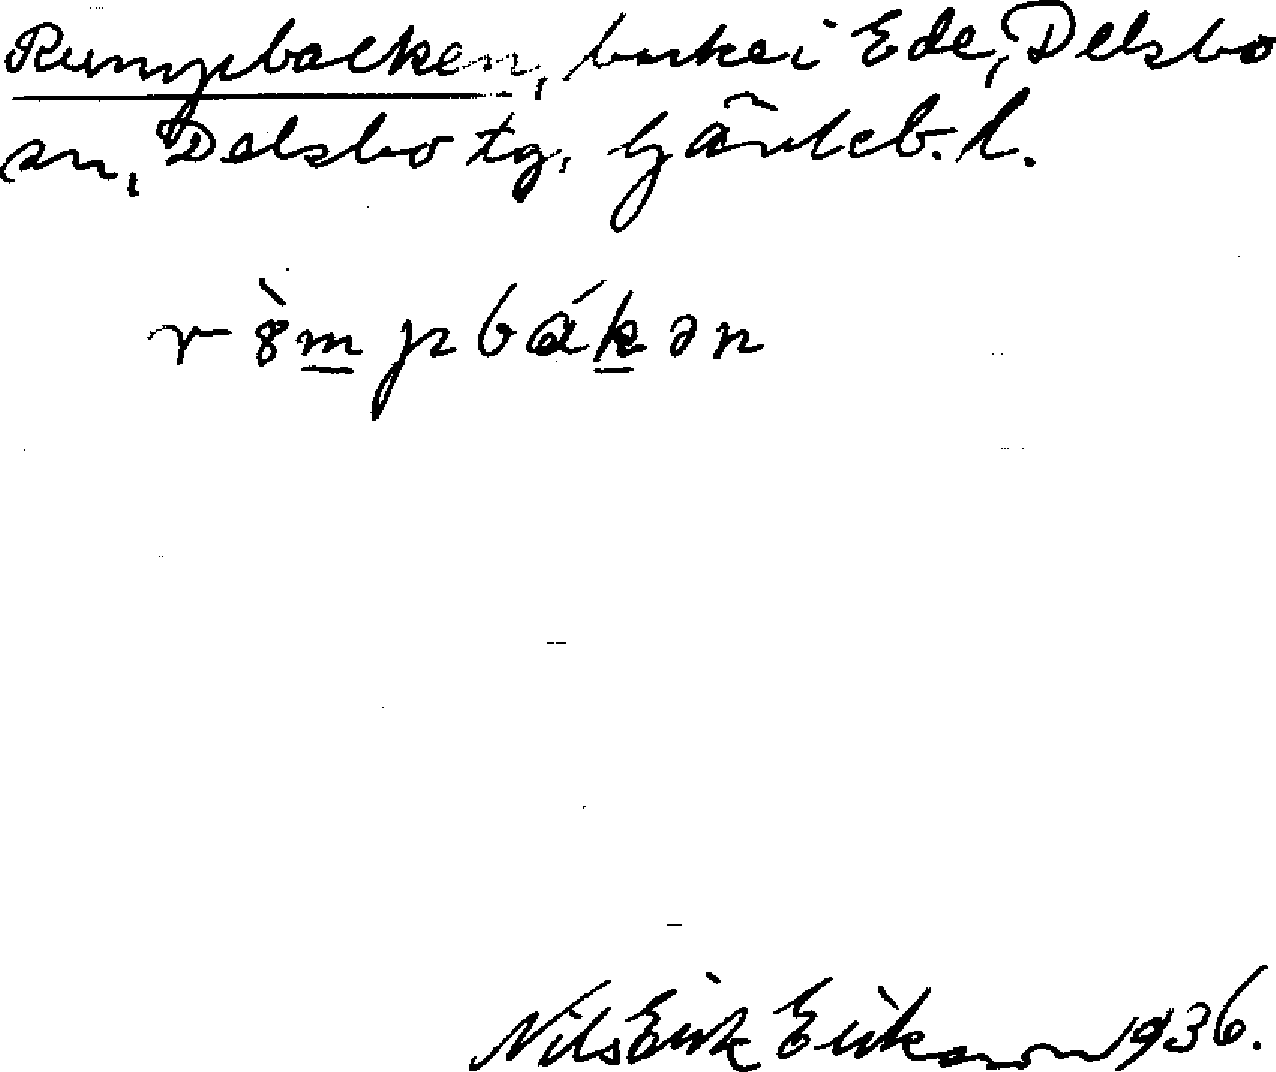 Rumpbacken, backe i Ede, Delsbo
sn, Delsbo tg, Gävleb. l.
r8̀m̲pbák̲ən
Nils Erik Erikson 1936.